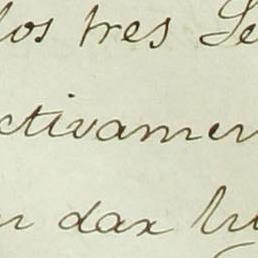 los tres Se
ctivamen
dar